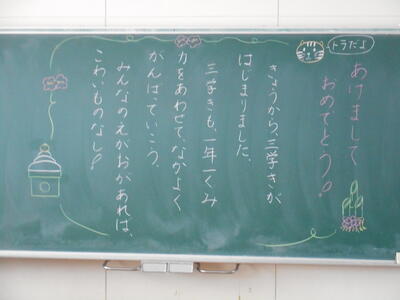 トラだよ
あけまして
おめでとう!
きょうから、三学きが
はじまりました。
三学きも、一年一くみ
力をあわせてなかよく
がんばっていこう。
みんなのえがおがあれば、
こわいものなし!